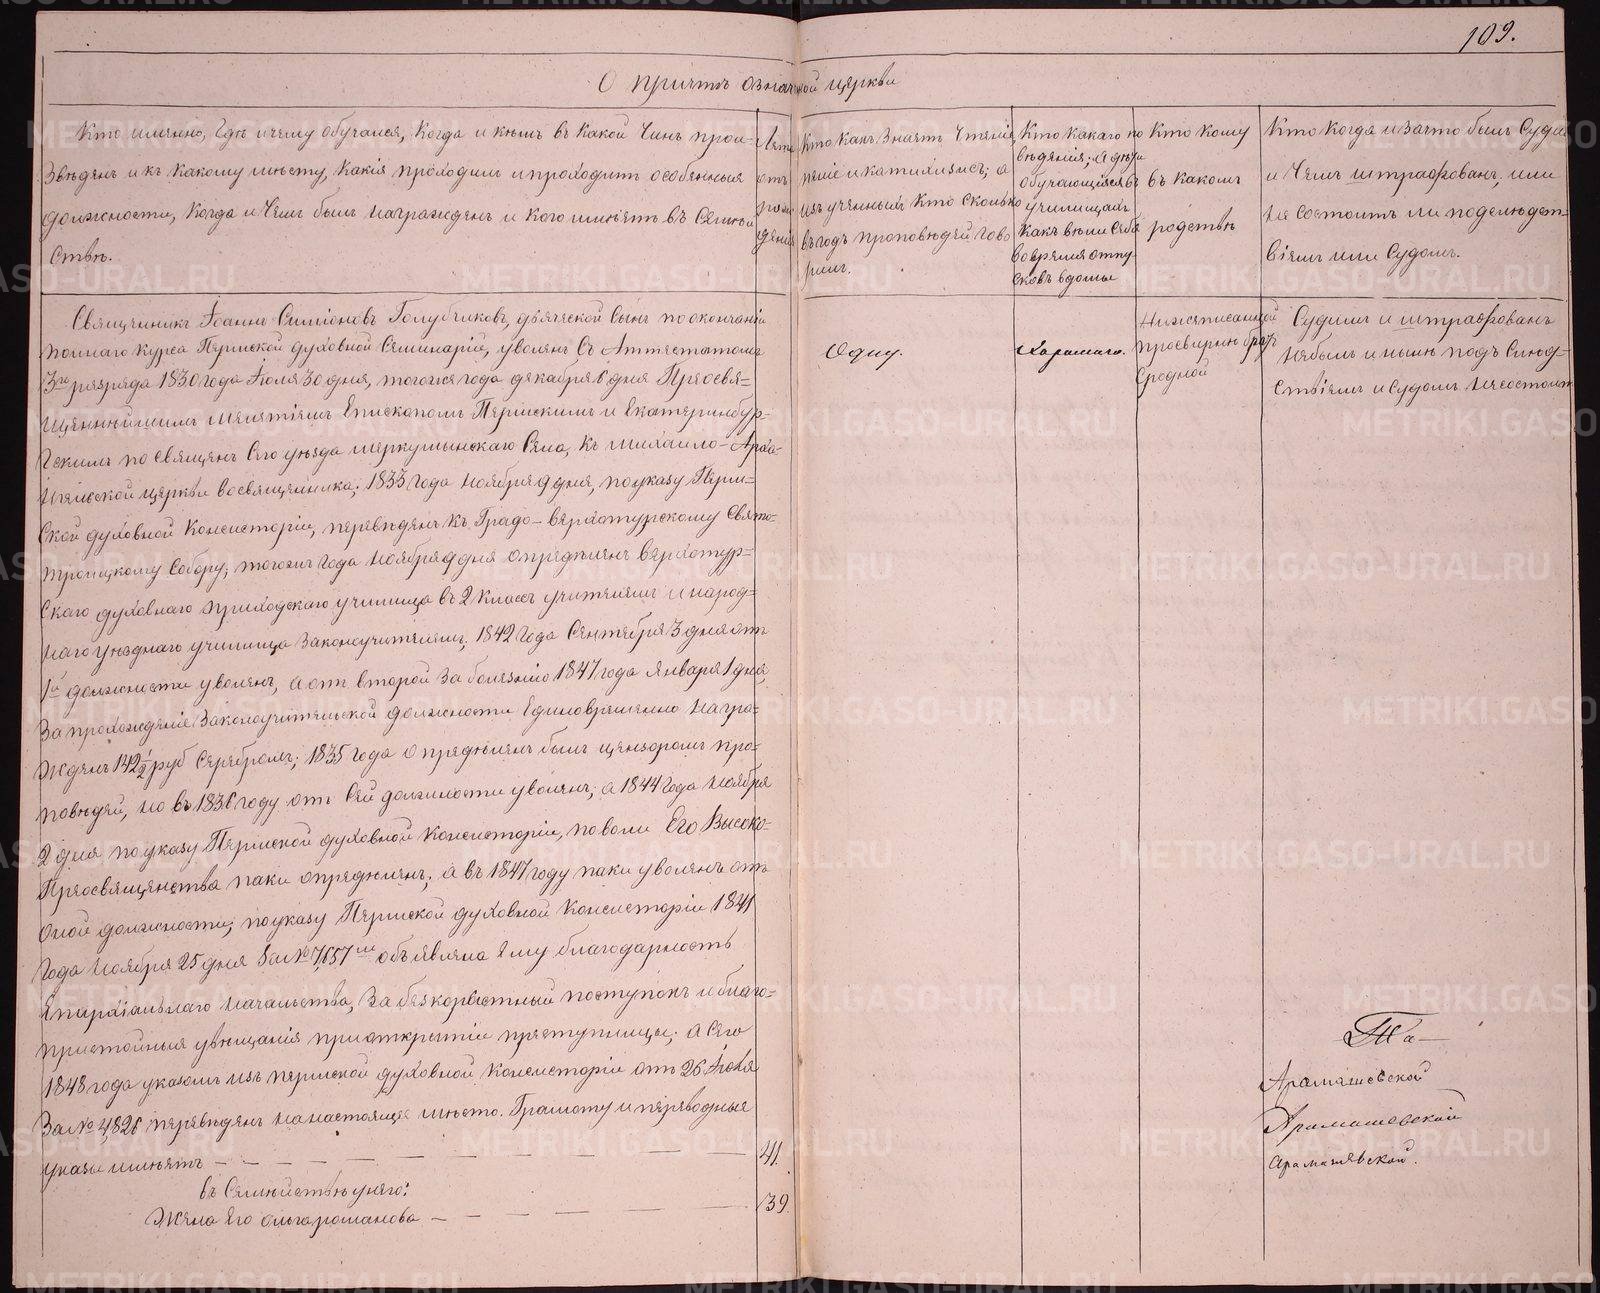 109.
О причтѣ означенной церкви
Кто именно, гдѣ и чему обучался, когда и кѣмъ въ какой чинъ прои-
зведенъ и къ какому мѣсту, какія проходилъ и проходитъ особенныя
должности, когда и чѣмъ былъ награжденъ и кого имѣетъ въ семѣй
ствѣ.
Лѣта
отъ
рож
денія
Кто какъ знаетъ чтеніе,
пѣніе и катихизисъ; а
изъ ученыхъ кто сколько
въ годъ проповѣдей гово
рилъ.
Кто какаго по
веденія; а дѣти
обучающіеся въ
училищахъ
какъ вели себя
во время отпу
сковъ въ домы
Кто кому
въ какомъ
родствѣ
Кто когда и за что былъ судимъ
и чѣмъ штрафованъ, или
не состоитъ ли подъ слѣдст-
віемъ или судомъ.
Священникъ Іоаннъ Симіоновъ Голубчиковъ, дьяческой сынъ по окончаніи
полнаго курса Пермской духовной Семинаріи, уволенъ съ Аттестатомъ
3го разряда 1830 года Іюля 30 дня, тогоже года декабря 6 дня Преосвя-
щеннѣйшимъ Мелетіемъ Епископомъ Пермскимъ и Екатеринбур-
гскимъ посвященъ сего уѣзда меркушинскаго села, къ михаило-Арха-
нгельской церкви во священника; 1833 года ноября 9 дня, по указу Перм-
ской духовной Консисторіи, переведенъ къ Градо-верхотурскому Свято-
троицкому собору; тогожъ года ноября 9 дня опредѣленъ верхотур-
скаго духовнаго приходскаго училища въ 2 классъ учителемъ и народ-
наго уѣзднаго училища законоучителемъ; 1842 года Сентября 3 дня отъ
1й должности уволенъ, а отъ второй за болезнію 1847 года января 1 дня,
за прохожденіе законоучительской должности единовременно награ-
жденъ 142 1/2 руб серебромъ; 1835 года опредѣленъ былъ цензоромъ про-
поведей, но въ 1836 году отъ сей должности уволенъ; а 1844 года ноября
2 дня по указу Пермской духовной консисторіи, по воли Его Высоко-
Преосвященства паки опредѣленъ; а въ 1847 году паки уволенъ отъ
оной должности; по указу Пермской духовной консисторіи 1841
года ноября 25 дня за № 7,657мъ объявлена ему благодарность
Епархіальнаго начальства, за безкорыстный поступокъ и благо-
пристойныя увѣщанія при открытіи преступницы; а сего
1848 года указомъ изъ пермской духовной консисторіи отъ 26 Іюля
за № 4,826 переведенъ на настоящее мѣсто. Грамоту и переводныя
указы имѣетъ — 41.
въ семѣйствѣ у него:
Жена его ольга романова — 39
Одну.
Хорошаго.
Нижеписанной
просвирнѣ братъ
сродной
Судимъ и штрафованъ
небылъ и нынѣ подъ слѣд-
ствіемъ и судомъ не состоитъ
Арамашевской
Арамашевскій
арамашевской.